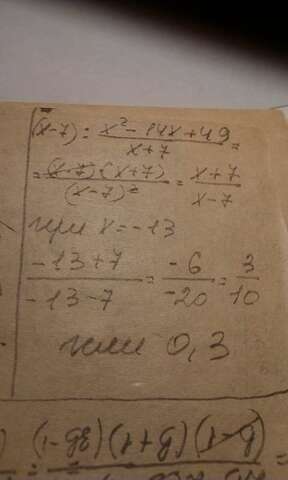 (x-7) : x² - 14x + 49 / x+7 =
= (x-7)·(x+7) / (x-7)² = x+7 / x-7
при x = -13
-13+7 / -13-7 = -6 / -20 = 3 / 10
или 0,3